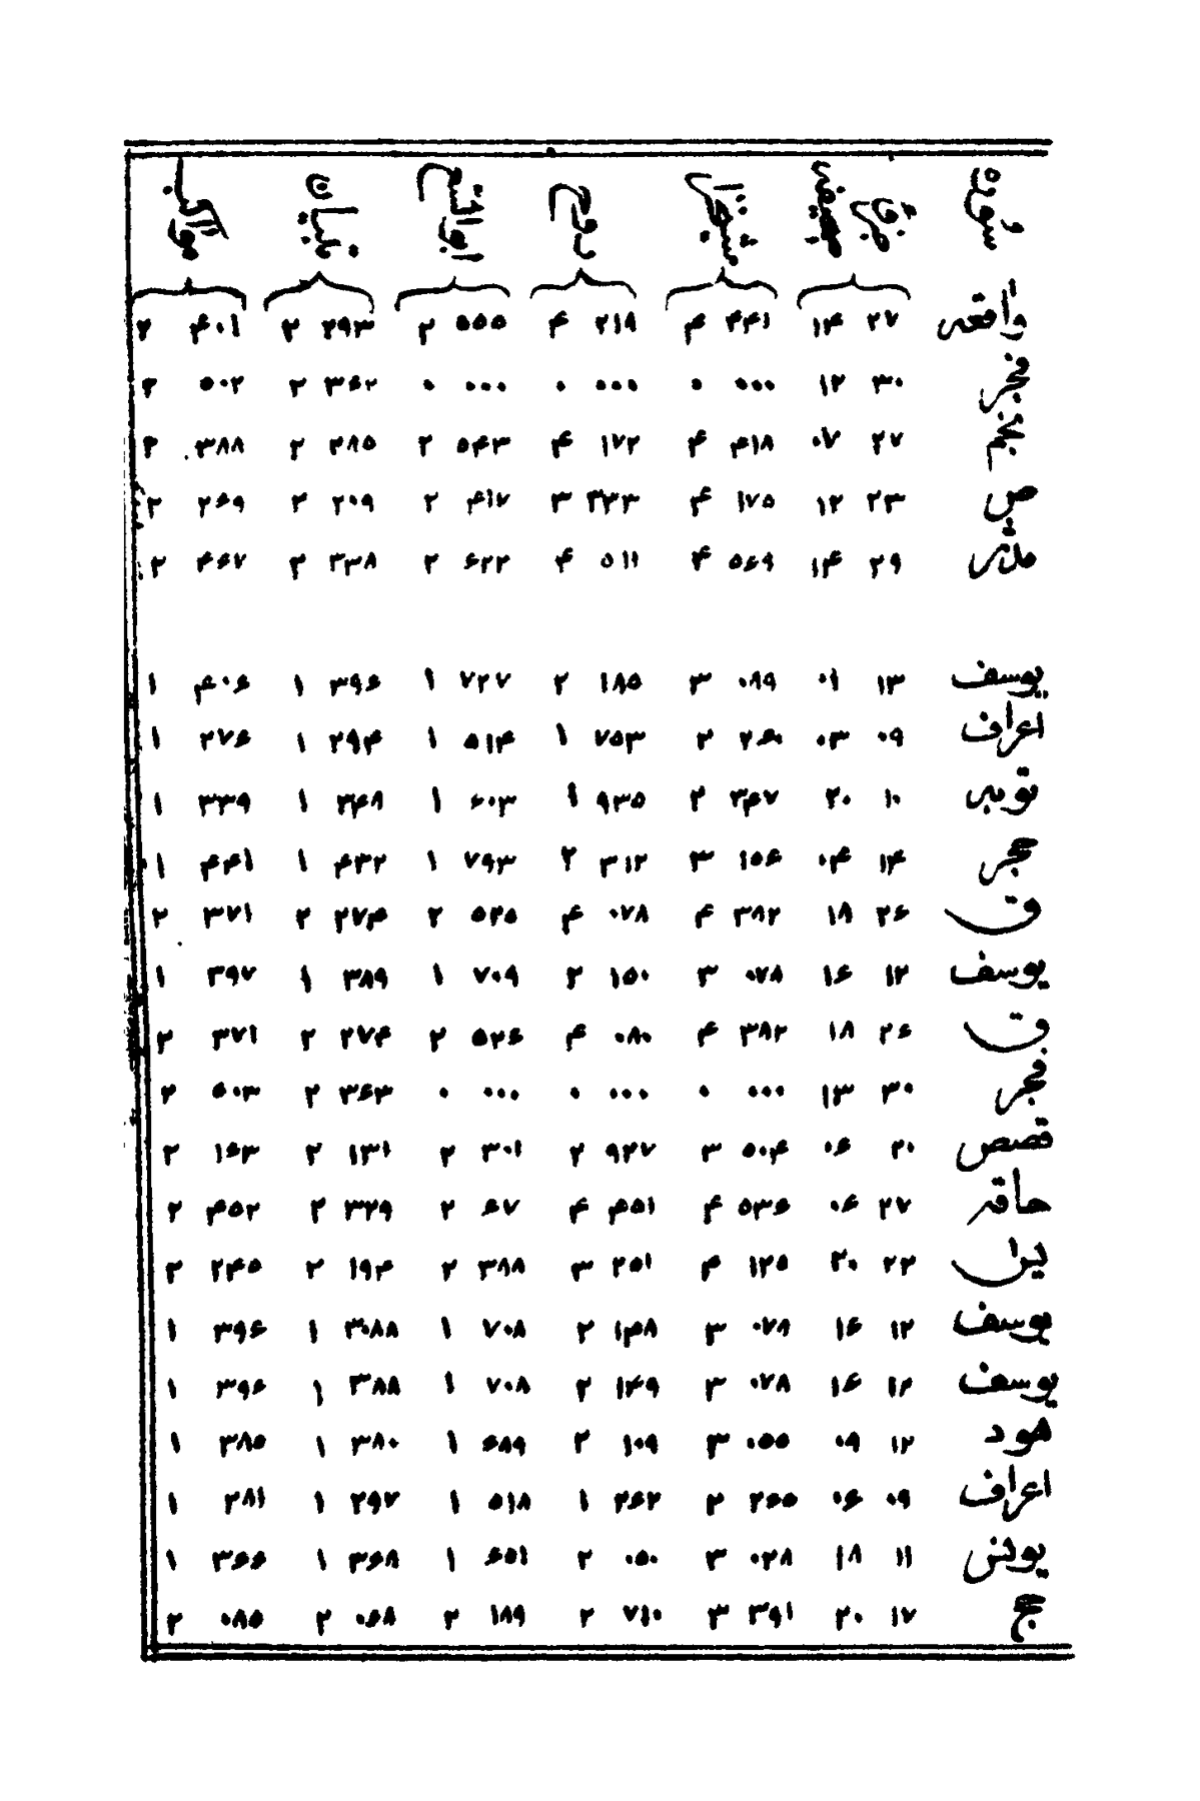 سُوره جزء ق صفحه روح ابوالفتح تبیان مواكب
واقعه ۲۷ ۱۴ ۴۴۱ ۴ ۲۱۹ ۴ ۵۵۵ ۲ ۲۹۳ ۲ ۴۰۱ ۲
فجر ۳۰ ۱۲ ۰۰۰ ۰ ۰۰۰ ۰ ۰۰۰ ۰ ۳۶۲ ۲ ۵۰۲ ۲
نجم ۲۷ ۰۷ ۴۱۸ ۴ ۱۷۲ ۴ ۵۴۳ ۲ ۲۸۵ ۲ ۳۸۸ ۲
ص ۲۳ ۱۲ ۱۷۵ ۴ ۳۳۳ ۳ ۴۱۷ ۲ ۲۰۹ ۲ ۲۶۹ ۲
مدثر ۲۹ ۱۴ ۵۶۹ ۴ ۵۱۱ ۴ ۶۲۲ ۲ ۳۳۸ ۲ ۴۶۷ ۲
یوسف ۱۳ ۰۱ ۰۸۹ ۳ ۱۸۵ ۲ ۷۲۷ ۱ ۳۹۶ ۱ ۴۰۶ ۱
اعراف ۰۹ ۰۳ ۲۶۰ ۲ ۷۵۳ ۱ ۵۱۴ ۱ ۲۹۴ ۱ ۲۷۶ ۱
توبه ۱۰ ۲۰ ۳۴۷ ۲ ۹۳۵ ۱ ۶۰۳ ۱ ۳۴۸ ۱ ۳۳۹ ۱
حجر ۱۴ ۰۴ ۱۵۶ ۳ ۳۱۲ ۲ ۷۹۳ ۱ ۴۳۲ ۱ ۴۴۱ ۱
ق ۲۶ ۱۸ ۳۸۲ ۴ ۰۷۸ ۴ ۵۲۵ ۲ ۲۷۴ ۲ ۳۷۱ ۲
یوسف ۱۲ ۱۶ ۰۷۸ ۳ ۱۵۰ ۲ ۷۰۹ ۱ ۳۸۹ ۱ ۳۹۷ ۱
ق ۲۶ ۱۸ ۳۸۲ ۴ ۰۸۰ ۴ ۵۲۶ ۲ ۲۷۴ ۲ ۳۷۱ ۲
فجر ۳۰ ۱۳ ۰۰۰ ۰ ۰۰۰ ۰ ۰۰۰ ۰ ۳۶۳ ۲ ۵۰۳ ۲
قصص ۲۰ ۰۶ ۵۰۴ ۳ ۹۲۷ ۲ ۳۰۱ ۲ ۱۳۱ ۲ ۱۶۳ ۲
حاقه ۲۷ ۰۶ ۵۳۶ ۴ ۴۵۱ ۴ ۶۷ ۲ ۳۲۹ ۲ ۴۵۲ ۲
یس ۲۲ ۲۰ ۱۲۵ ۴ ۲۵۱ ۳ ۳۸۸ ۲ ۱۹۴ ۲ ۲۴۵ ۲
یوسف ۱۲ ۱۶ ۰۷۸ ۳ ۱۴۸ ۲ ۷۰۸ ۱ ۳۰۸۸ ۱ ۳۹۶ ۱
یوسف ۱۲ ۱۶ ۰۷۸ ۳ ۱۴۹ ۲ ۷۰۸ ۱ ۳۸۸ ۱ ۳۹۶ ۱
هود ۱۲ ۰۹ ۰۵۵ ۳ ۱۰۹ ۲ ۶۸۹ ۱ ۳۸۰ ۱ ۳۸۵ ۱
اعراف ۰۹ ۰۶ ۲۶۵ ۲ ۲۶۲ ۱ ۵۱۸ ۱ ۲۹۷ ۱ ۲۸۱ ۱
یونس ۱۱ ۱۸ ۰۲۸ ۳ ۰۵۰ ۲ ۶۵۱ ۱ ۳۶۸ ۱ ۳۶۶ ۱
حج ۱۷ ۲۰ ۳۹۱ ۳ ۷۱۰ ۲ ۱۸۹ ۲ ۰۶۸ ۲ ۰۸۵ ۲